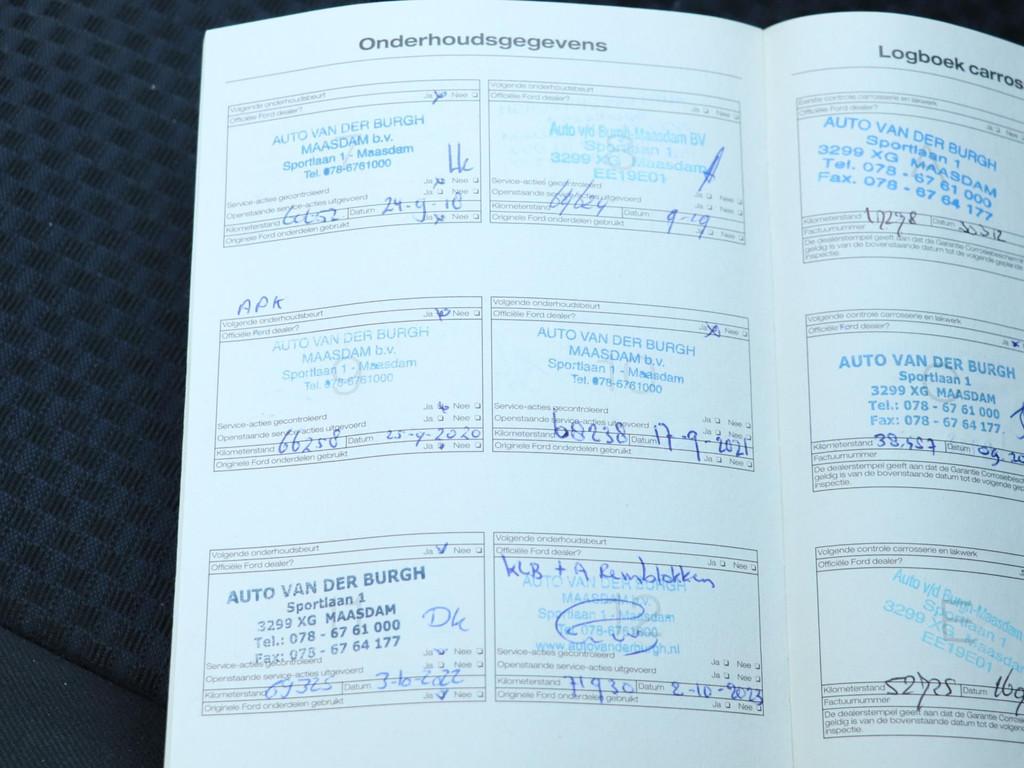 Onderhoudsgegevens
Volgende onderhoudsbeurt
Officiële Ford dealer? Ja Nee
AUTO VAN DER BURGH
MAASDAM b.v.
Sportlaan 1 - Maasdam
Tel. 078-6761000
Service-acties gecontroleerd Ja Nee
Openstaande service-acties uitgevoerd Ja Nee
Kilometerstand Datum
Originele Ford onderdelen gebruikt Ja Nee
Volgende onderhoudsbeurt
Officiële Ford dealer? Ja Nee
Auto v/d Burgh-Maasdam BV
Sportlaan 1
3299 XG Maasdam
EE19E01
Service-acties gecontroleerd Ja Nee
Openstaande service-acties uitgevoerd Ja Nee
Kilometerstand Datum 9-19
Originele Ford onderdelen gebruikt Ja Nee
APK
Volgende onderhoudsbeurt
Officiële Ford dealer? Ja Nee
AUTO VAN DER BURGH
MAASDAM b.v.
Sportlaan 1 - Maasdam
Tel. 078-6761000
Service-acties gecontroleerd Ja Nee
Openstaande service-acties uitgevoerd Ja Nee
Kilometerstand 66258 Datum 25-4-2020
Originele Ford onderdelen gebruikt Ja Nee
Volgende onderhoudsbeurt
Officiële Ford dealer? Ja Nee
AUTO VAN DER BURGH
MAASDAM b.v.
Sportlaan 1 - Maasdam
Tel. 078-6761000
Service-acties gecontroleerd Ja Nee
Openstaande service-acties uitgevoerd Ja Nee
Kilometerstand 68238 Datum 17-9-2021
Originele Ford onderdelen gebruikt Ja Nee
Volgende onderhoudsbeurt
Officiële Ford dealer? Ja Nee
AUTO VAN DER BURGH
Sportlaan 1
3299 XG MAASDAM
Tel.: 078 - 67 61 000
Fax: 078 - 67 64 177
Dk
Service-acties gecontroleerd Ja Nee
Openstaande service-acties uitgevoerd Ja Nee
Kilometerstand 69325 Datum
Originele Ford onderdelen gebruikt Ja Nee
Volgende onderhoudsbeurt
Officiële Ford dealer? Ja Nee
KLB + A Remblokken
AUTO VAN DER BURGH
MAASDAM b.v.
Sportlaan 1 - Maasdam
www.autovanderburgh.nl
Service-acties gecontroleerd Ja Nee
Openstaande service-acties uitgevoerd Ja Nee
Kilometerstand 71930 Datum 2-10-2023
Originele Ford onderdelen gebruikt Ja Nee
Logboek carros
Eerste controle carrosserie en lakwerk
Officiële Ford dealer? Ja
AUTO VAN DER BURGH
Sportlaan 1
3299 XG MAASDAM
Tel. 078 - 67 61 000
Fax. 078 - 67 64 177
Kilometerstand 17278 Datum
Factuurnummer
De dealerstempel geeft aan dat de Garantie Corrosiebescherm
geldig is van de bovenstaande datum tot de volgende
inspectie.
Volgende controle carrosserie en lakwerk
Officiële Ford dealer? Ja
AUTO VAN DER BURGH
Sportlaan 1
3299 XG MAASDAM
Tel.: 078 - 67 61 000
Fax: 078 - 67 64 177
Kilometerstand 38.557 Datum
Factuurnummer
De dealerstempel geeft aan dat de Garantie Corrosiebesch
geldig is van de bovenstaande datum tot de volgende
inspectie.
Volgende controle carrosserie en lakwerk
Officiële Ford dealer?
Auto v/d Burgh-Maasdam
Sportlaan 1
3299 XG Maasdam
EE19E01
Kilometerstand 52725 Datum
Factuurnummer
De dealerstempel geeft aan dat de Garantie Corrosiebe
geldig is van de bovenstaande datum tot de volgende
inspectie.